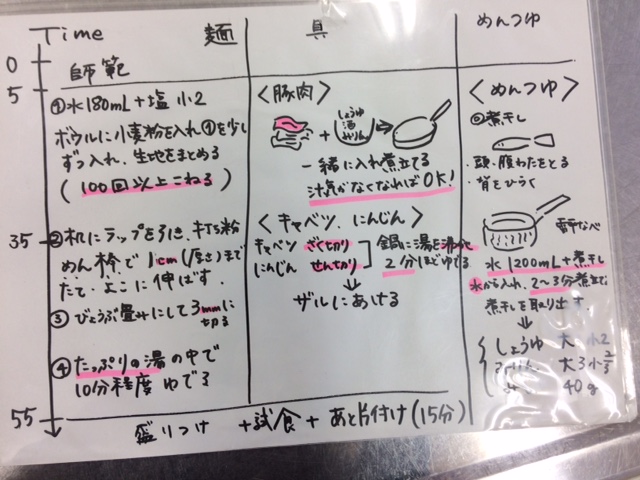 Time 麺 具 めんつゆ
0
師範
5
①水180mL+塩 小2
ボウルに小麦粉を入れ①を少し
ずつ入れ、生地をまとめる
(100回以上こねる)
35
②机にラップを引き、打ち粉
めん棒で1cm(厚さ)まで
たて・よこに伸ばす。
③びょうぶ畳みにして3mmに
切る
④たっぷりの湯の中で
10分程度ゆでる
55
<豚肉>
+
しょうゆ
湯
みりん
一緒に入れ煮立てる
汁気がなくなればOK!
<キャベツ、にんじん>
キャベツ ざく切り
にんじん せん切り
鍋に湯を沸
2分ほどゆでる
ザルにあける
<めんつゆ>
◎煮干し
・頭・腹わたをとる
・背をひらく
なべ
水1200mL+煮干し
水から入れ、2~3分煮立て
煮干しを取り出す。
しょうゆ 大 小2
みりん 大3小2/3
40g
盛りつけ +試食+ あと片付け(15分)